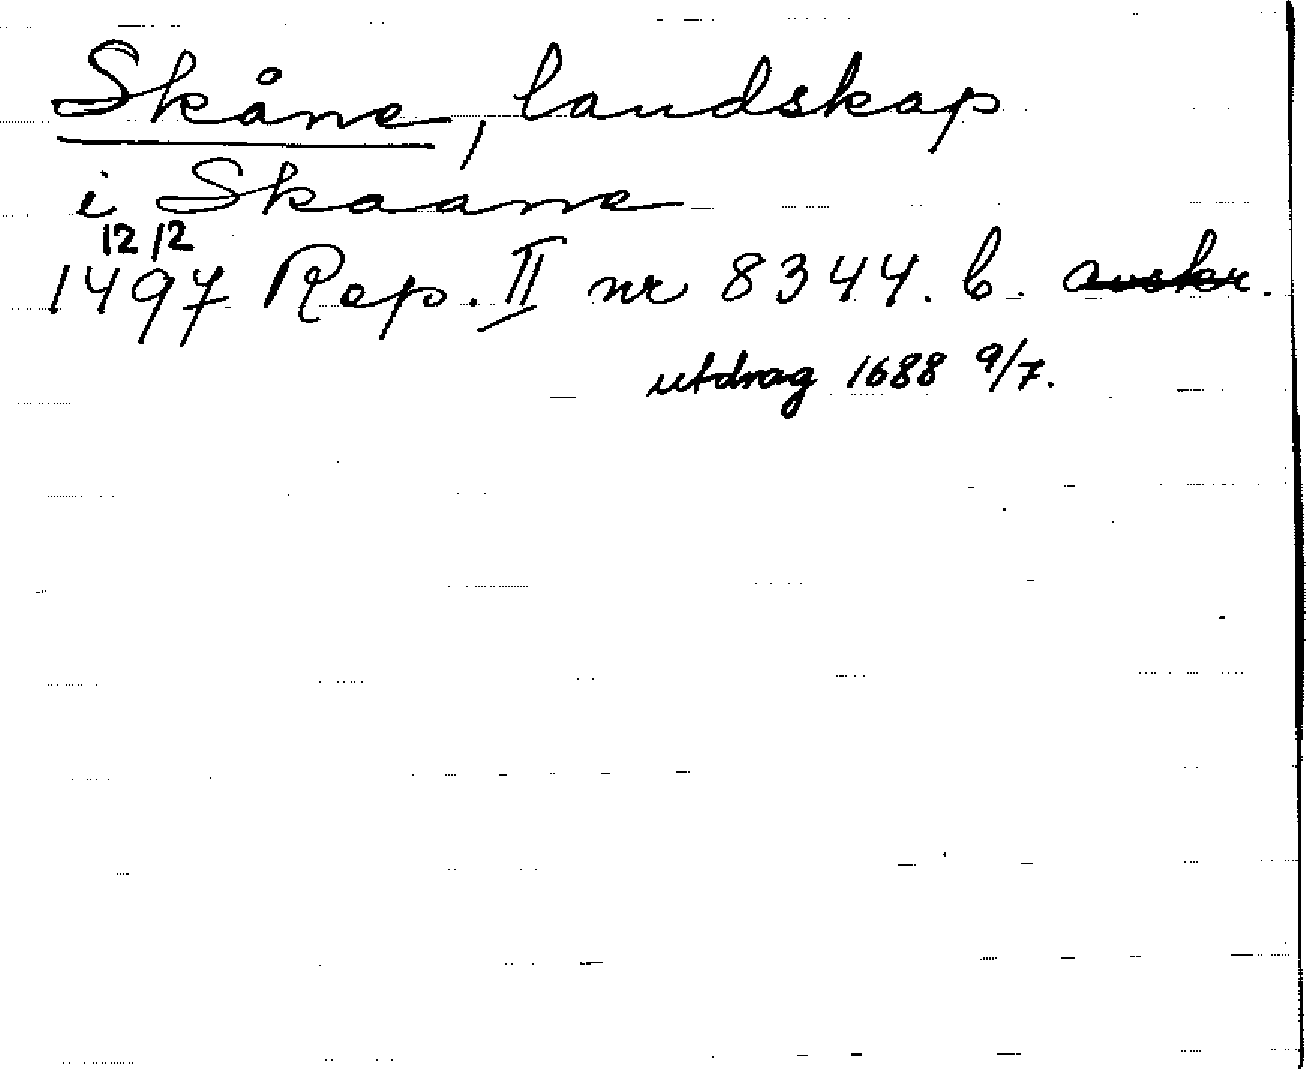 Skåne, landskap
i Skaane
12/2
1497 Rep. II nr 8344. b. avskr.
utdrag 1688 9/7.